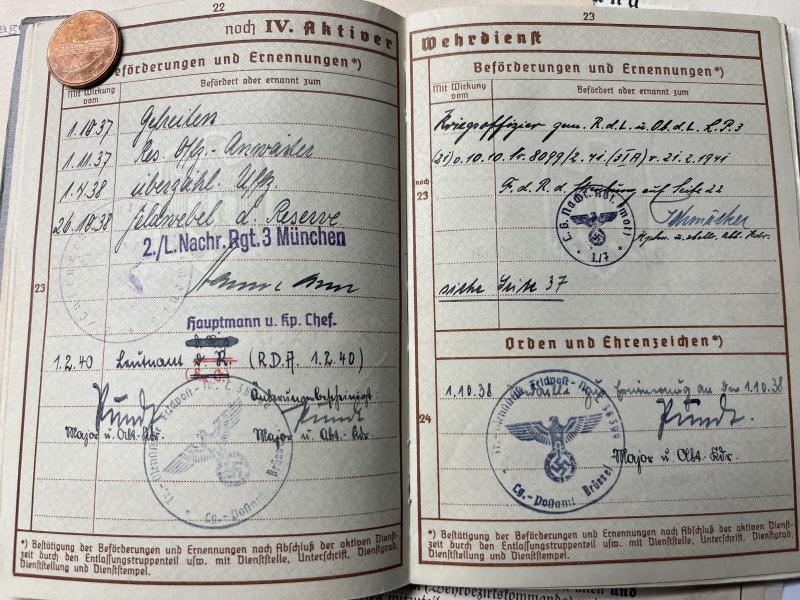 22
noch IV. Aktiver
Beförderungen und Ernennungen*)
Mit Wirkung vom
Befördert oder ernannt zum
1.10.37 Gefreiten
1.11.37 Res. Offz.-Anwärter
1.4.38 überzähl. Uffz.
26.10.38 Feldwebel d. Reserve
2./L.Nachr.Rgt.3 München
23
Hauptmann u. Kp. Chef.
1.2.40 Leutnant d. R. (R.D.A. 1.2.40)
Änderung bescheinigt
Pundt Pundt
Major u. Abt.-Kdr. Major u. Abt.-Kdr
*) Bestätigung der Beförderungen und Ernennungen nach Abschluß der aktiven Dienst-
zeit durch den Entlassungstruppenteil usw. mit Dienststelle, Unterschrift, Dienstgrad,
Dienststellung und Dienststempel.
23
Wehrdienst
Beförderungen und Ernennungen*)
Mit Wirkung vom
Befördert oder ernannt zum
Kriegsoffizier gem. R.d.L. u. Ob.d.L. L.P.3
v. 21.2.1941
noch 23
F.d.R.d. auf Seite 22
siehe Seite 37
Orden und Ehrenzeichen*)
1.10.38 Medaille zur Erinnerung an den 1.10.38
24
Feldpost-
Brüssel
Pundt.
Major u. Abt.-Kdr.
*) Bestätigung der Beförderungen und Ernennungen nach Abschluß der aktiven Dienst-
zeit durch den Entlassungstruppenteil usw. mit Dienststelle, Unterschrift, Dienstgrad,
Dienststellung und Dienststempel.